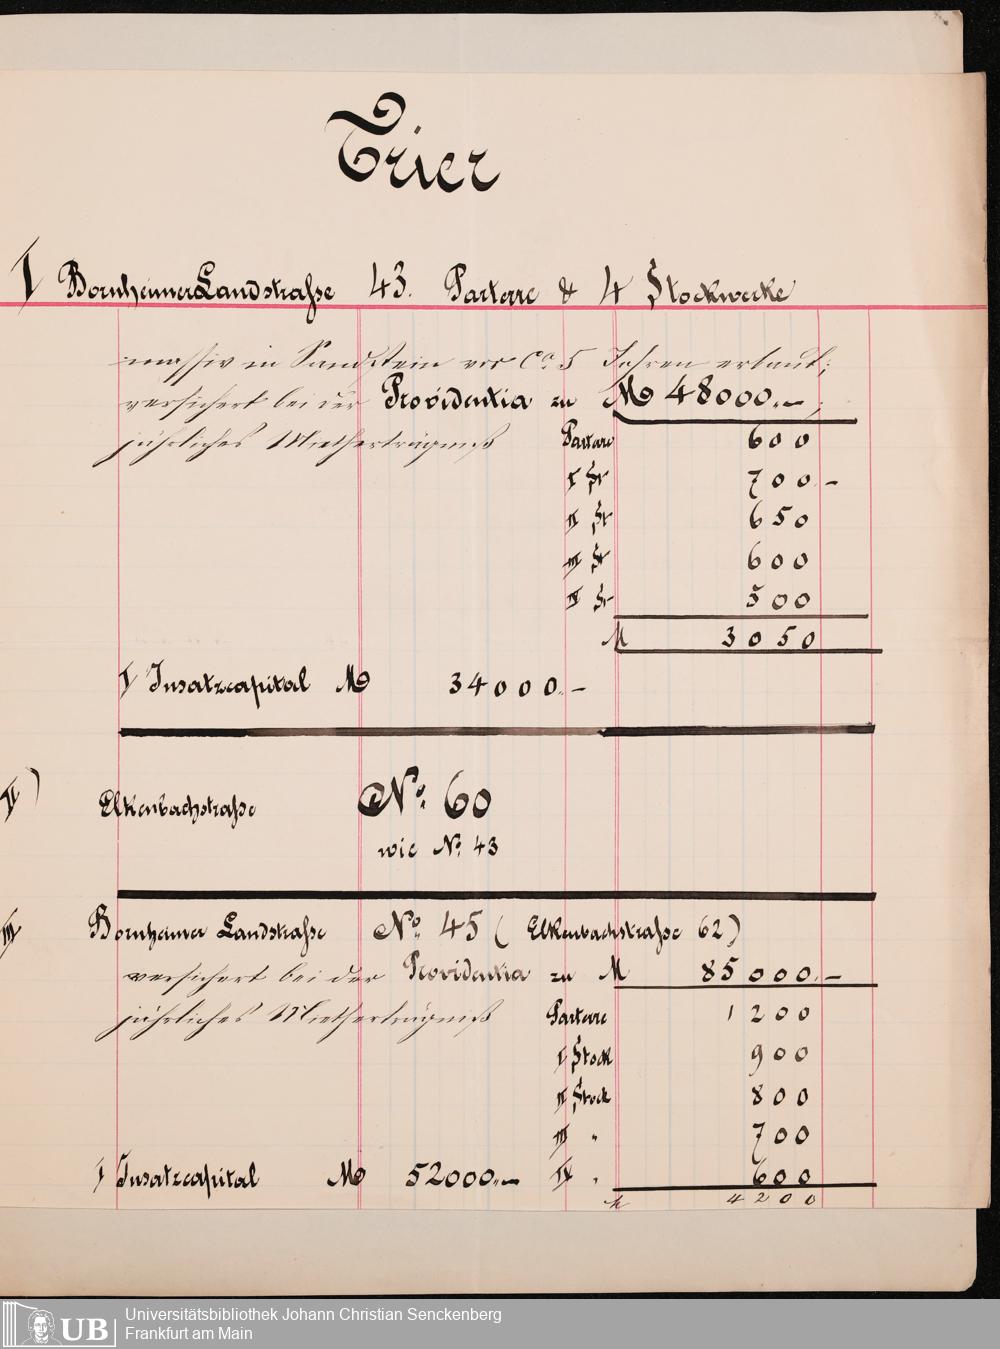 Trier
I Bornheimer Landstraße 43. Parterre & 4 Stockwerke
massiv in Sandstein vor Ca 5 Jahren erbaut;
versichert bei der Providentia zu M 48000.-;
jährliches Mietherträgniß Parterre 600
I St 700.-
II St 650
III St 600
IV St 500
M 3050
I Insatzcapital M 34000.-
II) Elkenbachstraße No. 60
wie No. 43
III Bornheimer Landstraße No. 45 (Elkenbachstraße 62)
versichert bei der Providentia zu M 85000.-
jährliches Mietherträgniß Parterre 1200
I Stock 900
II Stock 800
III " 700
I Insatzcapital M 52000.- IV " 600
M 4200
UB Universitätsbibliothek Johann Christian Senckenberg
Frankfurt am Main